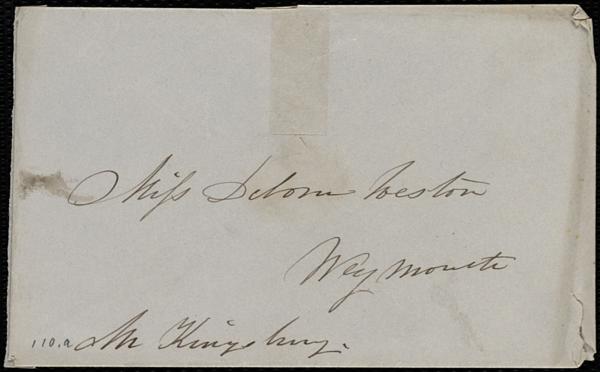 Miss Debora Weston
Weymouth
110.a Mr Kingsbury.